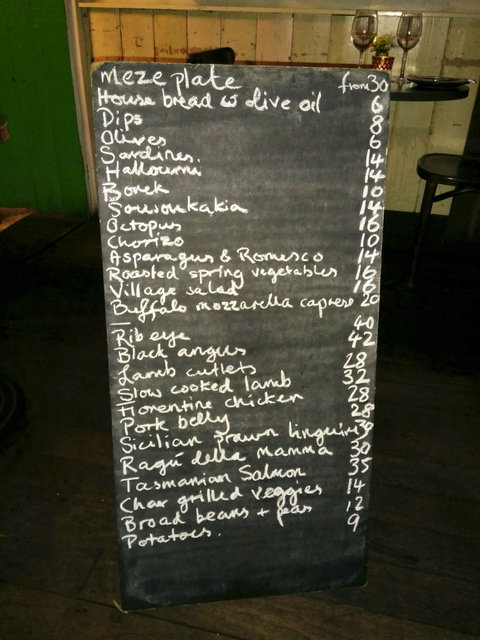 meze plate from 30
House bread w olive oil 6
Dips 8
Olives 6
Sardines. 14
Halloumi 14
Borek 10
Souvoukakia 14
Octopus 16
Chorizo 10
Asparagus & Romesco 14
Roasted spring vegetables 16
Village salad 16
Buffalo mozzarella caprese 20
—
Rib eye 40
Black angus 42
Lamb cutlets 28
Slow cooked lamb 32
Florentine chicken 28
Pork belly 28
Sicilian prawn linguine
Ragú della mamma 30
Tasmanian Salmon 35
Char grilled veggies 14
Broad beans + peas 12
Potatoes. 9